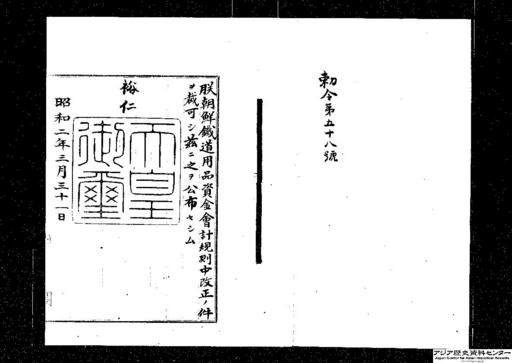 勅令第五十八號
朕朝鮮鐵道用品資金會計規則中改正ノ件
ヲ裁可シ茲ニ之ヲ公布セシム
裕仁
天皇
御璽
昭和二年三月三十一日
アジア歴史資料センター
Japan Center for Asian Historical Records